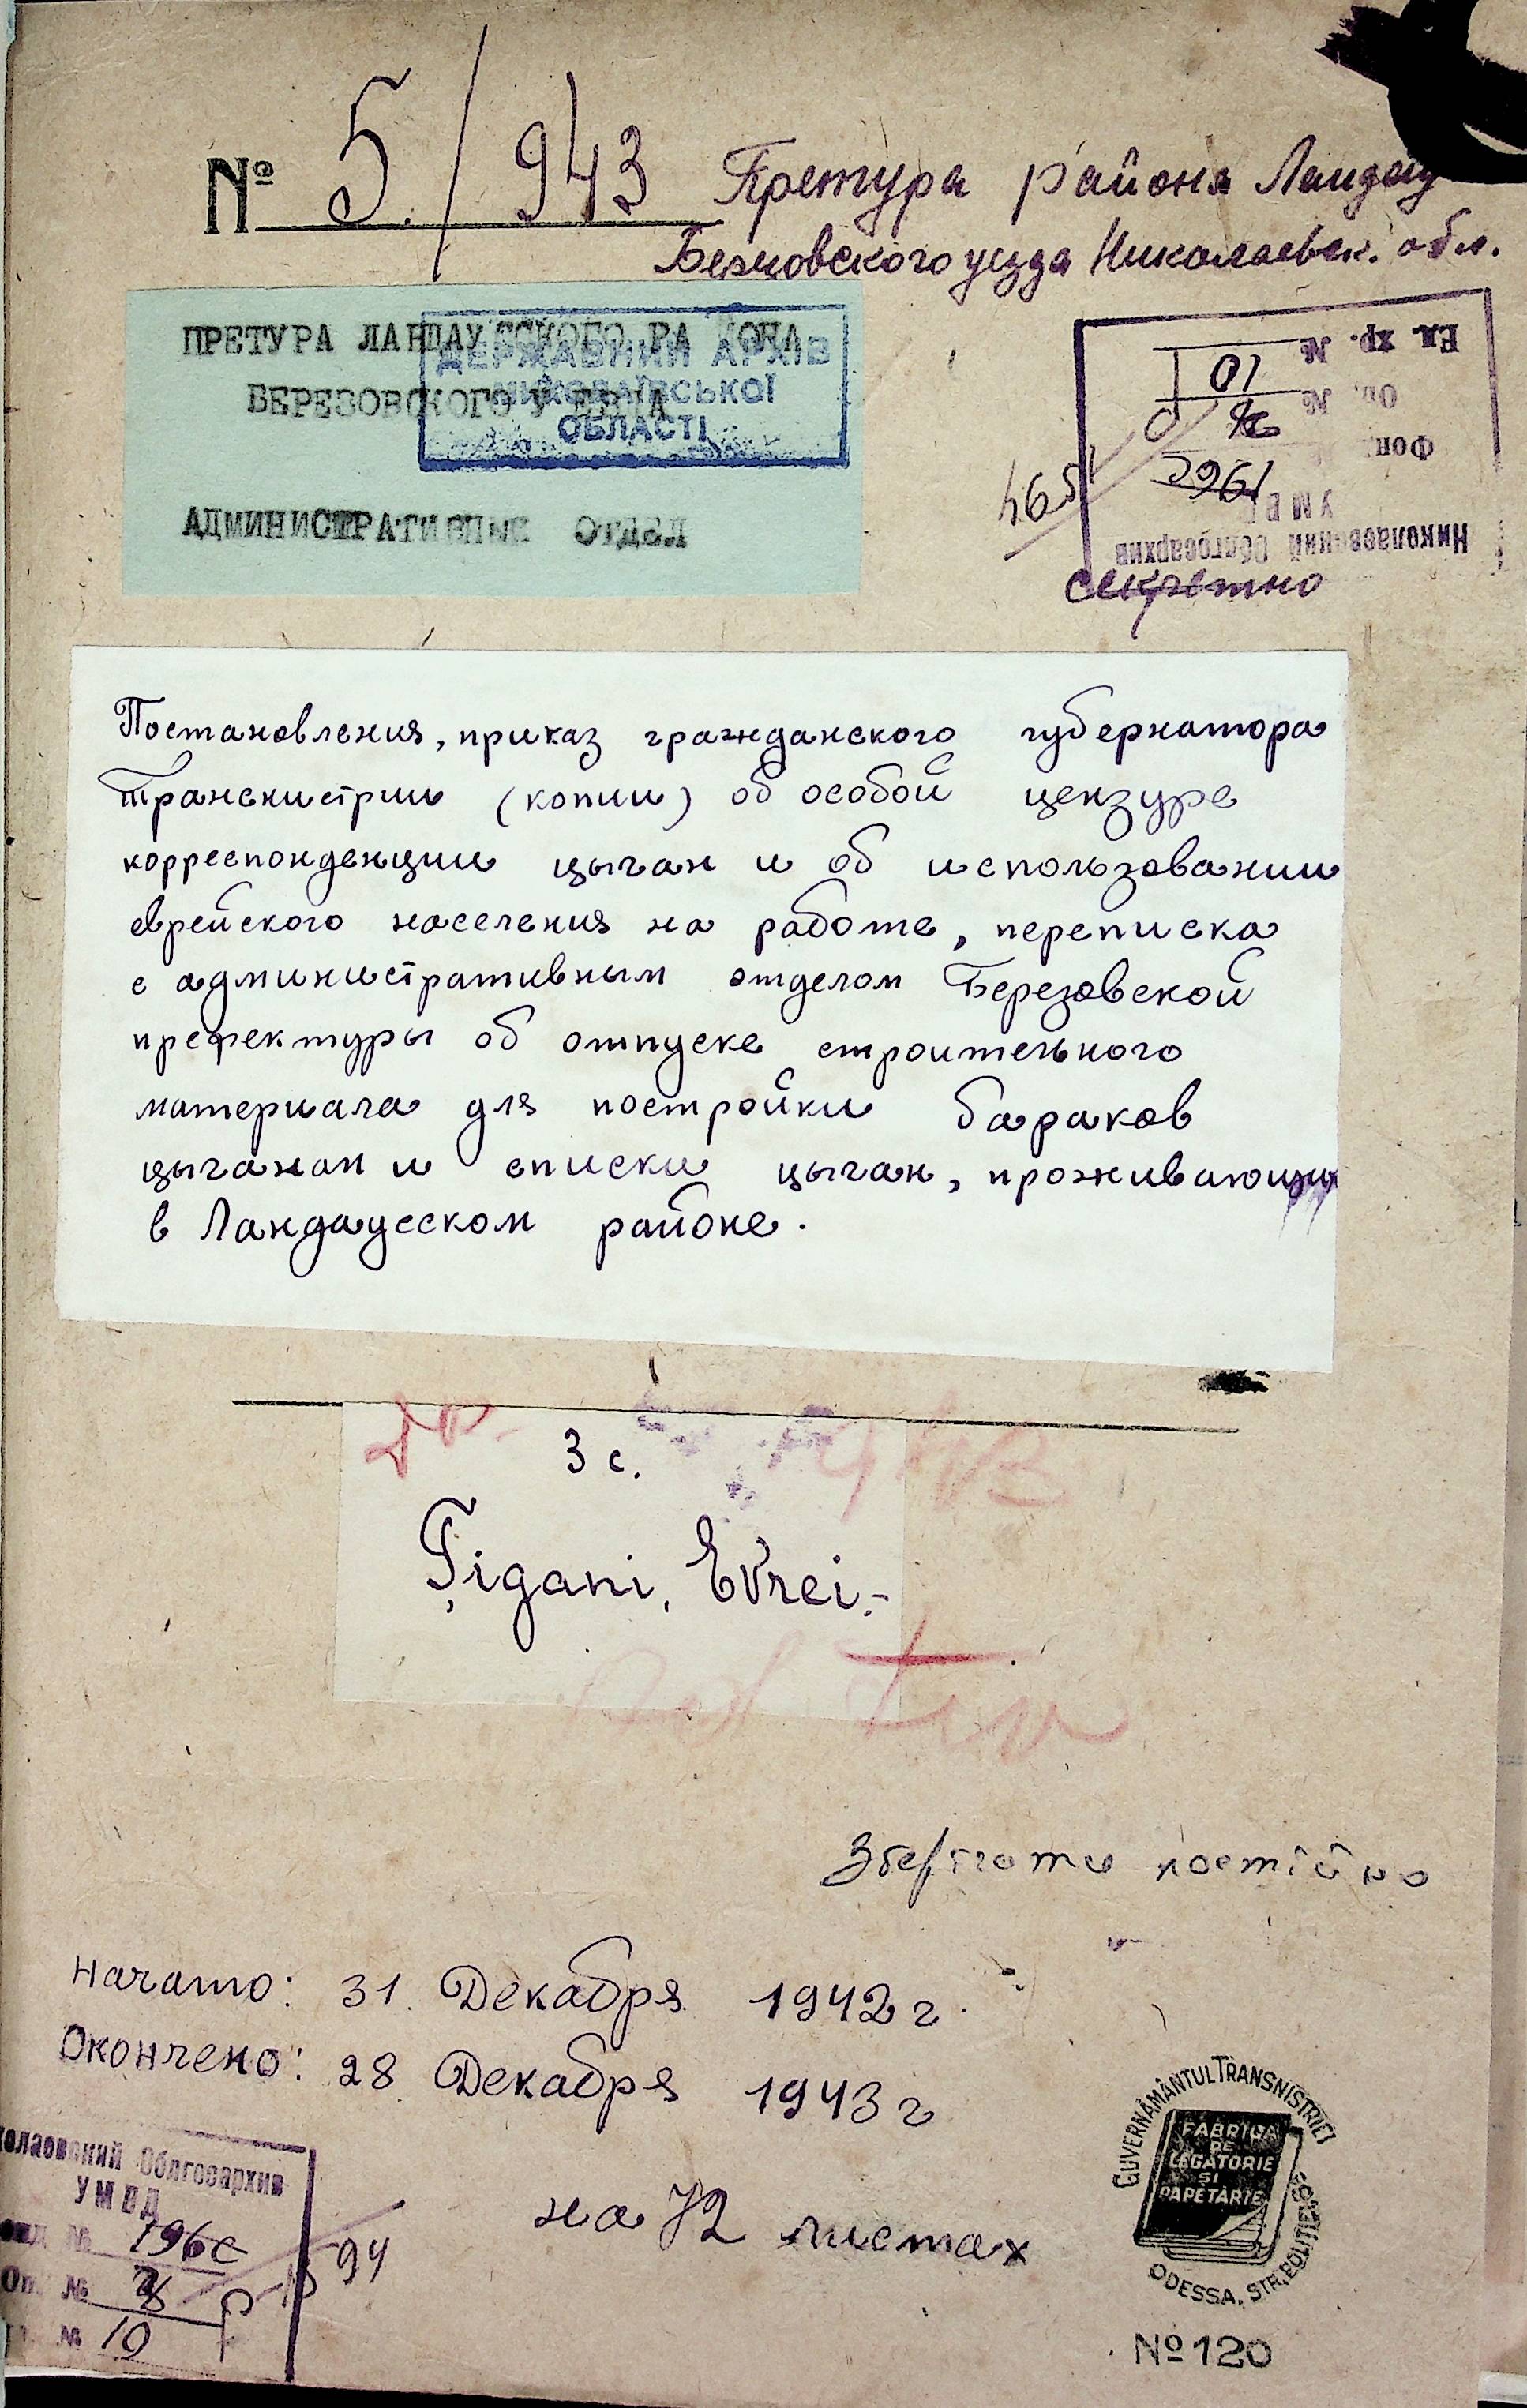 № 5./943
Претура района Ландау
Березовского уезда Николаевск. обл.
ПРЕТУРА ЛАНДАУССКОГО РАЙОНА
БЕРЕЗОВСКОГО УЕЗДА
АДМИНИСТРАТИВНЫЙ ОТДЕЛ
ДЕРЖАВНИЙ АРХІВ
МИКОЛАЇВСЬКОЇ
ОБЛАСТІ
Николаевский Облгосархив
УМВД
Фонд № 196с
Оп. №
Ед. хр. № 10
секретно
Постановления, приказ гражданского губернатора
Транснистрии (копии) об особой цензуре
корреспонденции цыган и об использовании
еврейского населения на работе, переписка
с административным отделом Березовской
префектуры об отпуске строительного
материала для постройки бараков
цыганам и списки цыган, проживающих
в Ландаусском районе.
3 с.
Țigani, Evrei.-
Зберігати постійно
Начато: 31 Декабря 1942 г.
Окончено: 28 Декабря 1943 г
на 72 листах
колаевский Облгосархив
УМВД
196с
Оп. №
№ 10
94
GUVERNĂMÂNTUL TRANSNISTRIEI
FABRICA
DE
LEGATORIE
ȘI
PAPETĂRIE
ODESSA, STR. POLIȚIEI
№ 120